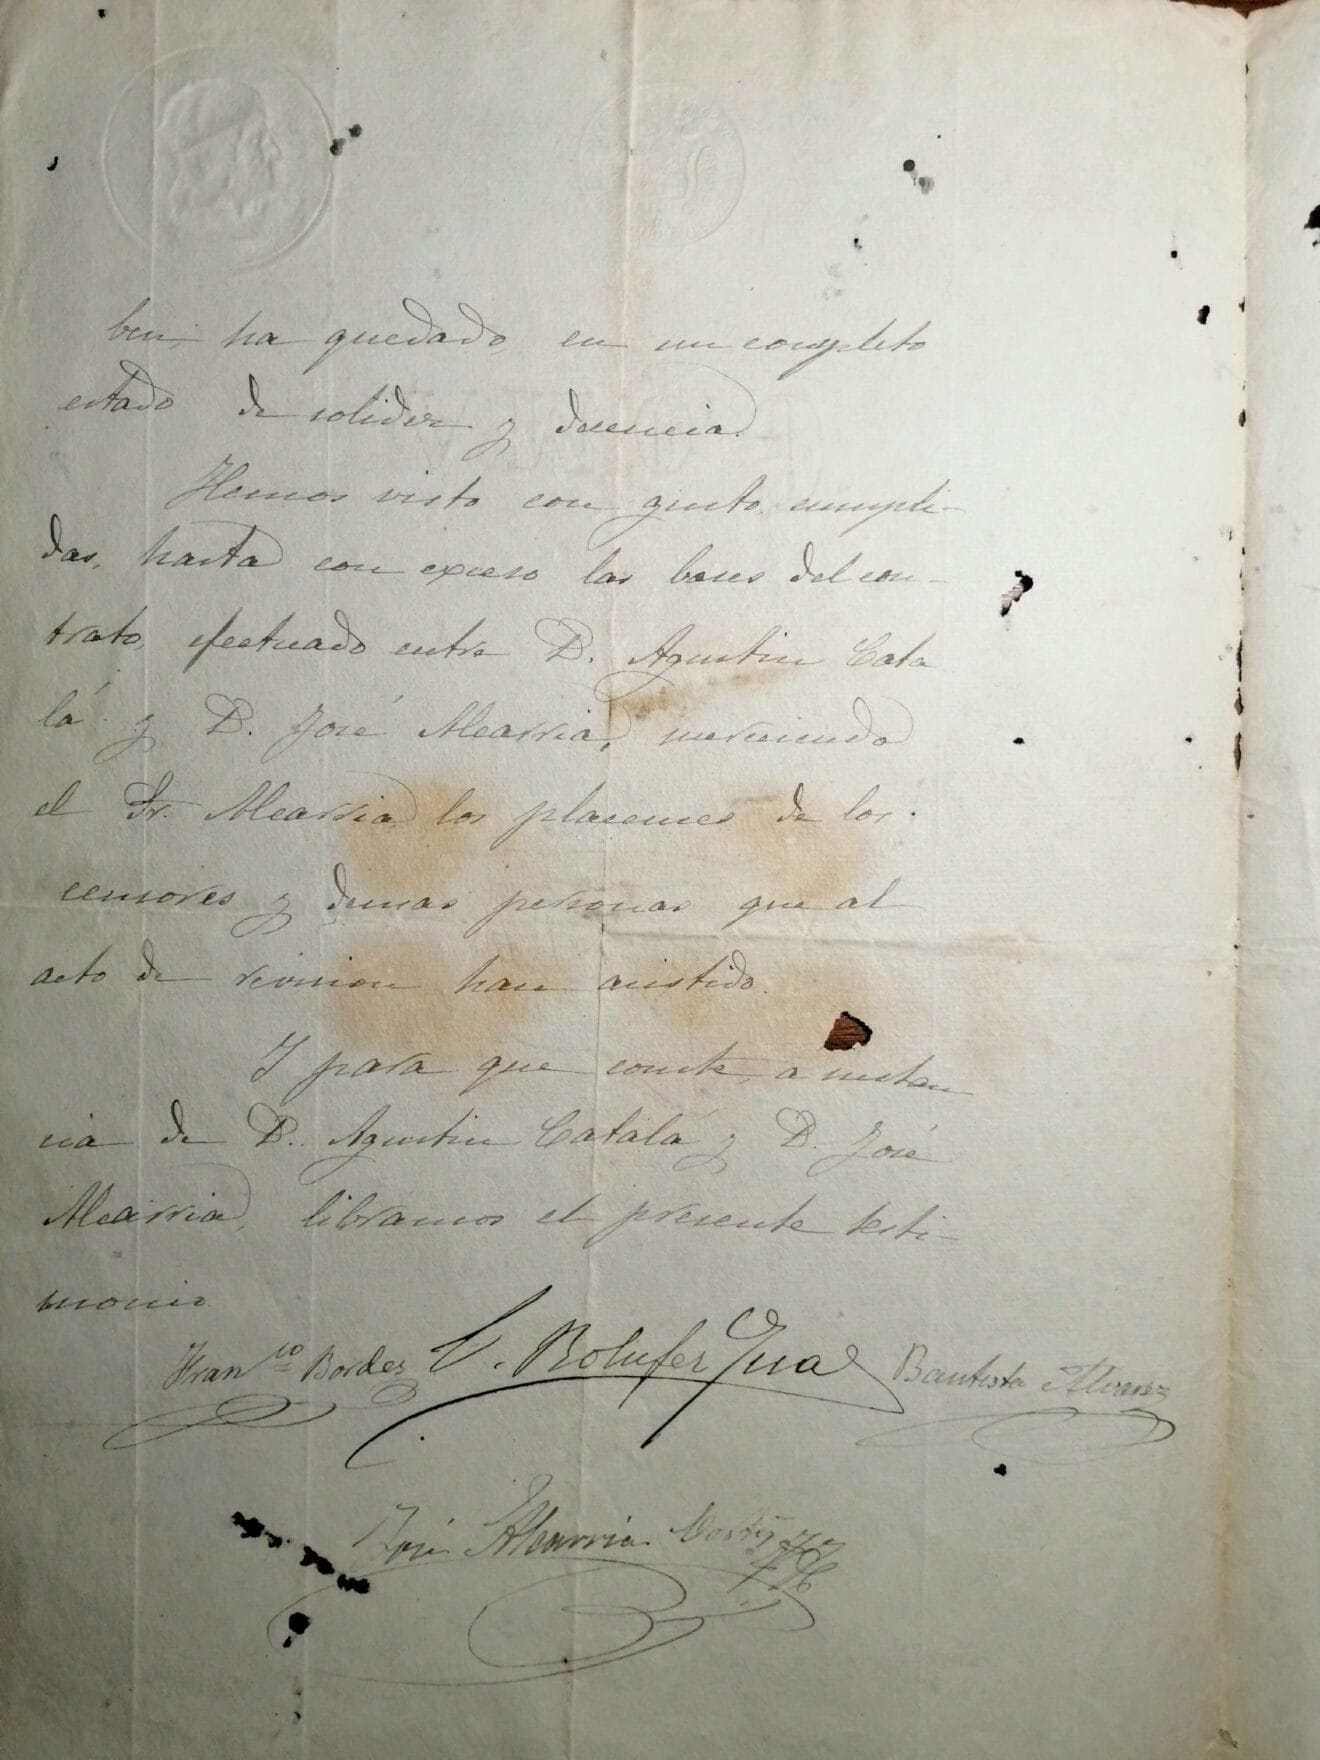 ben, ha quedado, en un completo
estado de solidez y decencia.
Hemos visto con gusto, cumpli-
das, hasta con exceso las bases del con-
trato, efectuado entre D. Agustin Cata
lá y D. José Alcarria, mereciendo
el Sr. Alcarria los placemes de los
censores y demas personas que al
acto de revision han asistido.
Y para que conste, á instan
cia de D. Agustin Catalá y D. José
Alcarria, libramos el presente testi-
monio
Fran.co Bordes V. Bolufer Bautista Alvarez
José Alcarria